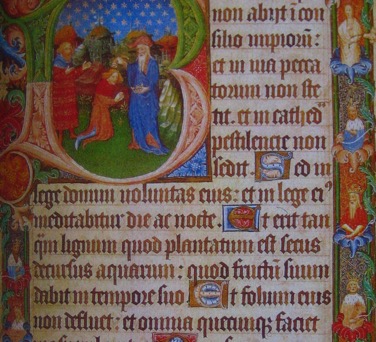 non abijt i con
silio impiorū:
et in uia pecca
torum non ste
tit. et in cathed
pestilencie non
sedit. Sed in
lege domini uoluntas eius: et in lege ei⁹
meditabitur die ac nocte. Et erit tan
q̄m lignum quod plantatum est secus
decursus aquarum: quod fructū suum
dabit in tempore suo. Et folium eius
non defluet: et omnia quecunqꝫ faciet